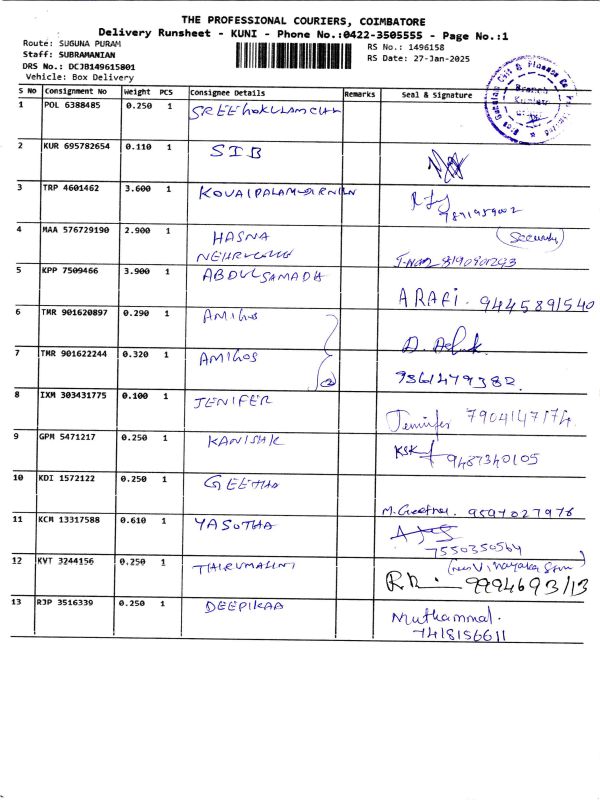 THE PROFESSIONAL COURIERS, COIMBATORE
Delivery Runsheet - KUNI - Phone No.:0422-3505555 - Page No.:1
Route: SUGUNA PURAM
Staff: SUBRAMANIAN
DRS No.: DCJB149615801
Vehicle: Box Delivery
RS No.: 1496158
RS Date: 27-Jan-2025
S No Consignment No Weight PCS Consignee Details Remarks Seal & Signature
1 POL 6388485 0.250 1
2 KUR 695782654 0.110 1 SIB
3 TRP 4601462 3.600 1
4 MAA 576729190 2.900 1 HASNA (Security)
5 KPP 7509466 3.900 1 ABDUL SAMADH ARAFI. 9445891540
6 TMR 901620897 0.290 1 AMIGOS
7 TMR 901622244 0.320 1 AMIGOS 9361479382.
8 IXM 303431775 0.100 1 JENIFER Jennifer
9 GPM 5471217 0.250 1 KANISHK KSK 9487340105
10 KDI 1572122 0.250 1 GEETHA M. Geetha. 9597027976
11 KCM 13317588 0.610 1 YASOTHA
7550350564
12 KVT 3244156 0.250 1 THIRUMALINI
13 RJP 3516339 0.250 1 DEEPIKAA Muthammal.
7418156611